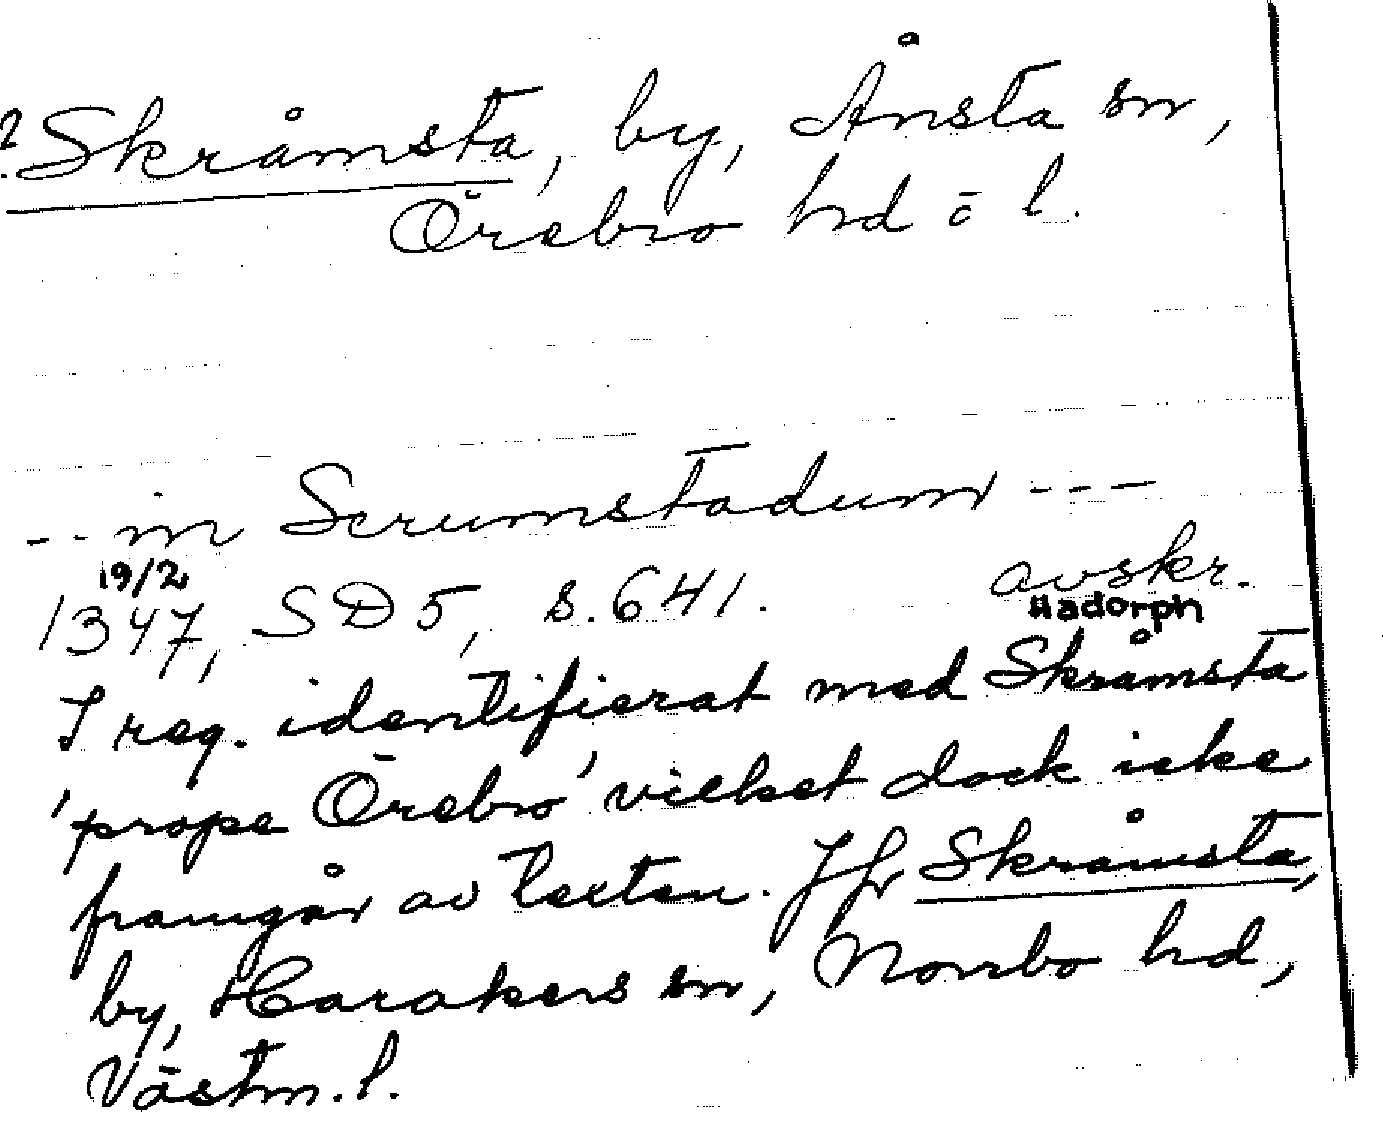 ? Skråmsta, by, Ånsta sn,
Örebro hd o l.
-- in Scrumstadum ---
19/2
1347, SD 5, s. 641. avskr.
Hadorph
I reg. identifierat med Skråmsta
'prope Örebro' vilket dock icke
framgår av texten. Jfr Skråmsta,
by, Harakers sn, Norrbo hd,
Västm. l.